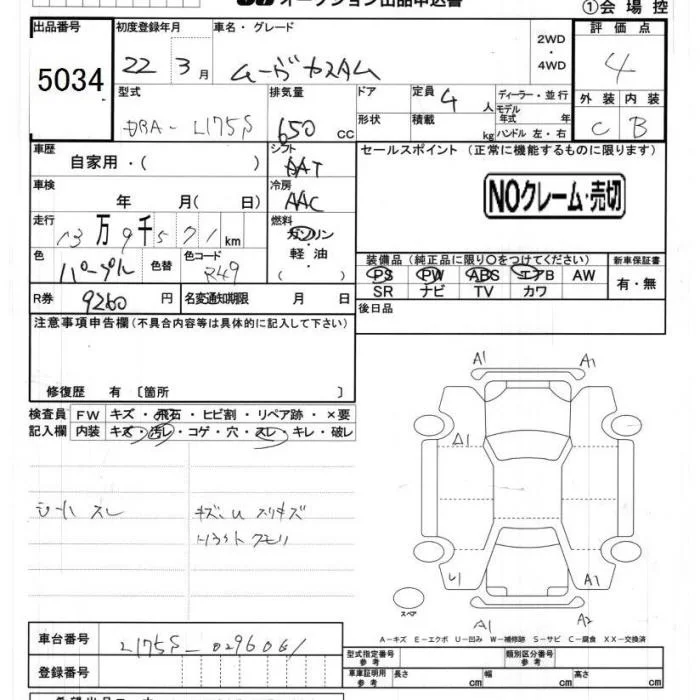 オークション出品申込書
①会場控
出品番号 初度登録年月 車名・グレード 評価点
5034 22年 3月 ムーヴカスタム 2WD・4WD 4
型式 排気量 ドア 定員 4人 ディーラー・並行 外装 内装
DBA-L175S 650cc 形状 積載 kg モデル年式 年 ハンドル 左・右 C B
車歴 自家用・( ) シフト AAT セールスポイント(正常に機能するものに限ります)
車検 年 月( 日) 冷房 AAC NOクレーム・売切
走行 13万9千571km 燃料 ガソリン 軽油 ( )
色 パープル 色替 色コード R49
装備品(純正品に限り○をつけてください) 新車保証書
PS PW ABS エアB AW 有・無
SR ナビ TV カワ
R券 9260円 名変通知期限 月 日 後日品
注意事項申告欄(不具合内容等は具体的に記入して下さい)
修復歴 有 〔箇所 〕
検査員記入欄 FW キズ・飛石・ヒビ割・リペア跡・×要
内装 キズ・汚レ・コゲ・穴・スレ・キレ・破レ
シート スレ キズU スリキズ
A1 A1
A1
U1 A1
スペア
A1 A2
A-キズ E-エクボ U-凹み W-補修跡 S-サビ C-腐食 XX-交換済
車台番号 L175S-0296061
登録番号
型式指定番号 参考 類別区分番号 参考
車庫証明用 参考 長さ cm 幅 cm 高さ cm